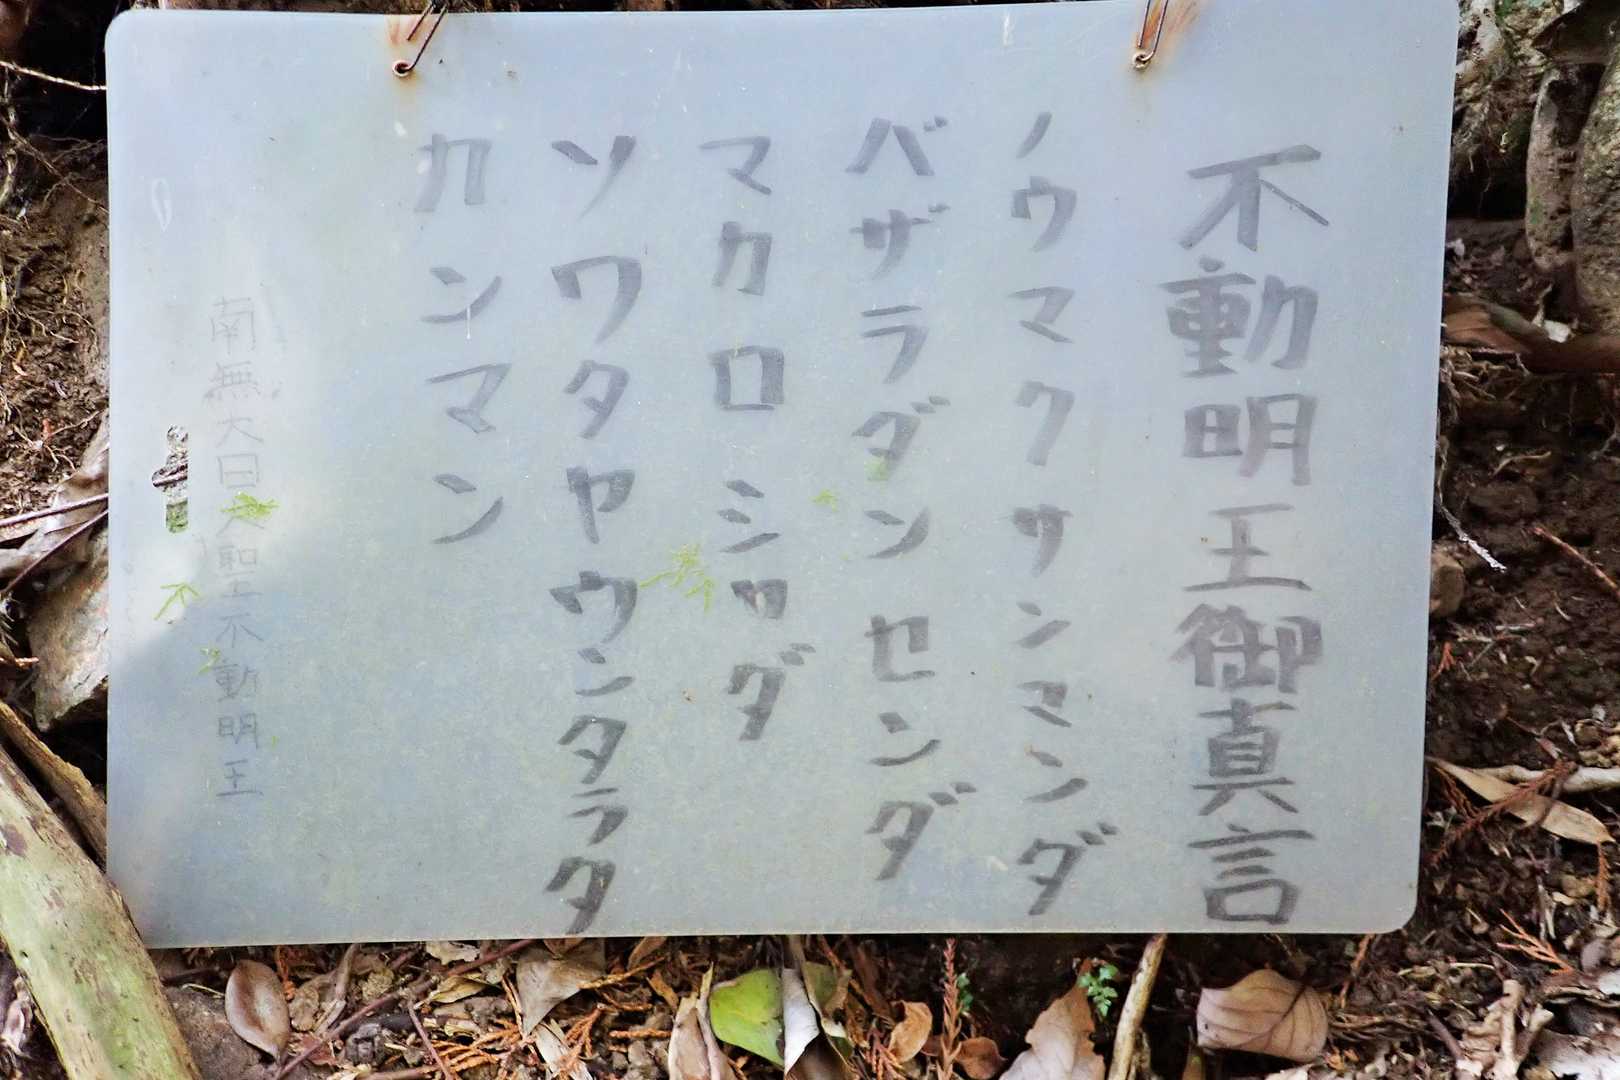 不動明王御真言
ノウマクサンマンダ
バザラダンセンダ
マカロシャダ
ソワタヤウンタラタ
カンマン
南無大日大聖不動明王